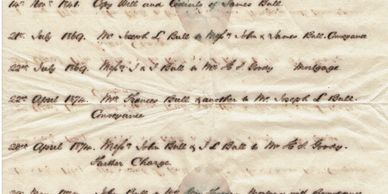 14th Novr 1841. Copy Will and Codicils of James Ball
21st July 1869. Mr Joseph L Ball to Messrs John & James Ball. Conveyance
22nd July 1869 Messrs J & J Ball to Mr H S Mortgage
22nd April 1874. Mr Frances Ball & another to Mr Joseph L Ball.
Conveyance
28th April 1874. Messrs John Ball & J L Ball to Mr H S
Further Charge.
John Ball